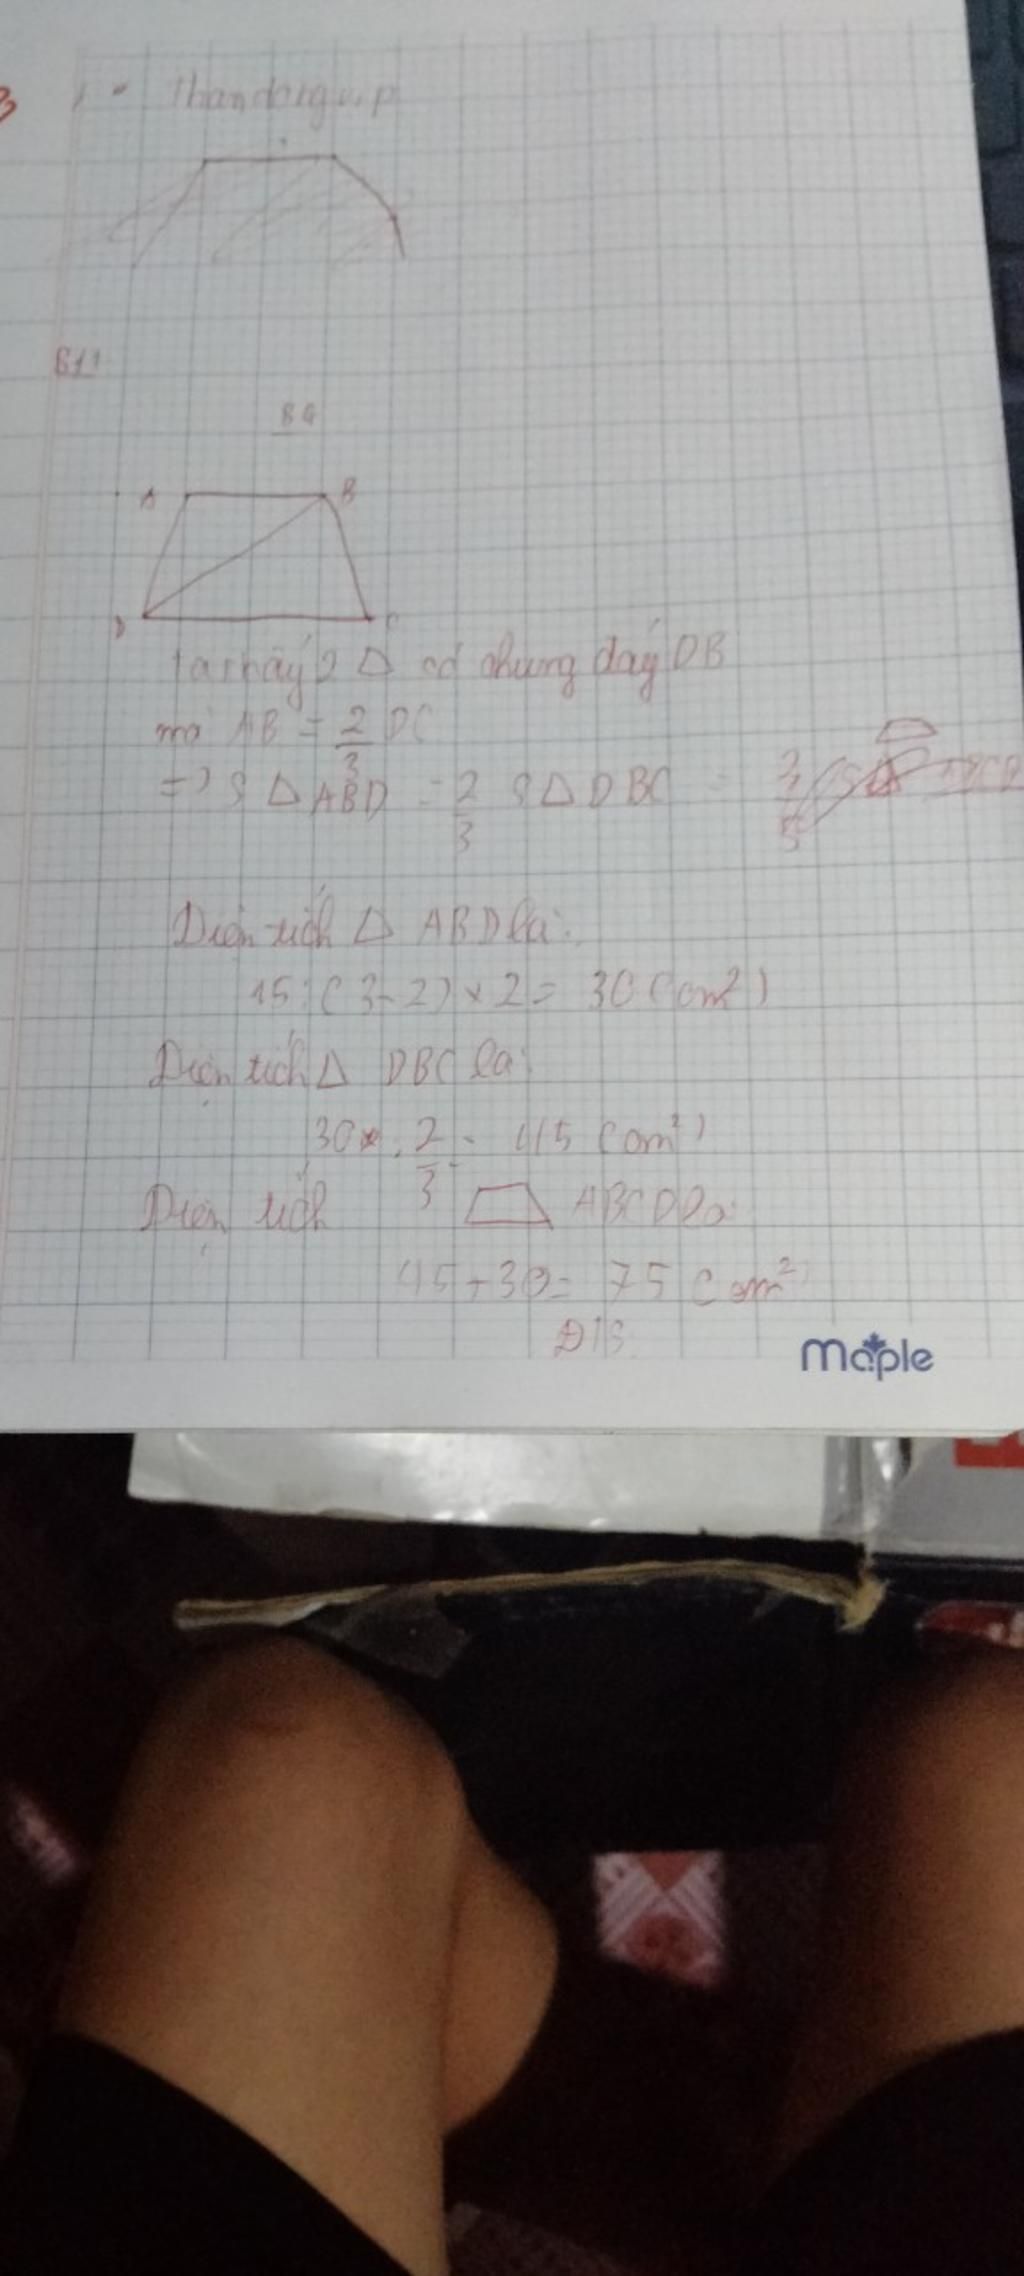 B11
BG
A B
D C
ta thấy 2 Δ có chung đáy DB
mà AB = 2/3 DC
=> S Δ ABD = 2/3 S Δ DBC = 2/5
Diện tích Δ ABD là:
15 : (3-2) x 2 = 30 (cm²)
Diện tích Δ DBC là:
30 : 2/3 = 45 (cm²)
Diện tích ABCD là:
45 + 30 = 75 (cm²)
Đ/S
maple